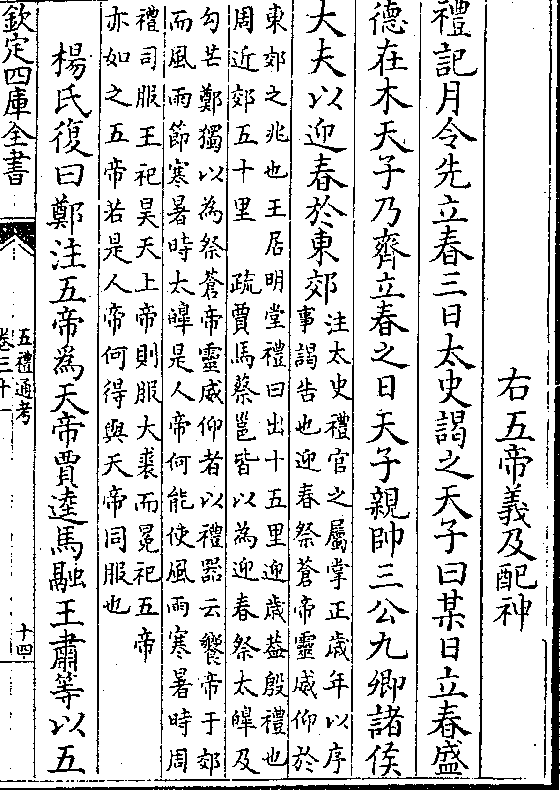 右五帝義及配神
禮記月令先立春三日太史謁之天子曰某日立春盛
德在木天子乃齊立春之日天子親帥三公九卿諸侯
大夫以迎春於東郊
注太史禮官之屬掌正歲年以序
事謁告也迎春祭蒼帝靈威仰於
東郊之兆也王居明堂禮曰出十五里迎歲葢殷禮也
周近郊五十里 疏賈馬蔡邕皆以為迎春祭太皥及
勾芒鄭獨以為祭蒼帝靈威仰者以禮器云饗帝于郊
而風雨節寒暑時太皥是人帝何能使風雨寒暑時周
禮司服王祀昊天上帝則服大裘而冕祀五帝
亦如之五帝若是人帝何得與天帝同服也
楊氏復曰鄭注五帝為天帝賈逵馬融王肅等以五
欽定四庫全書
五禮通考
卷三十一
十四